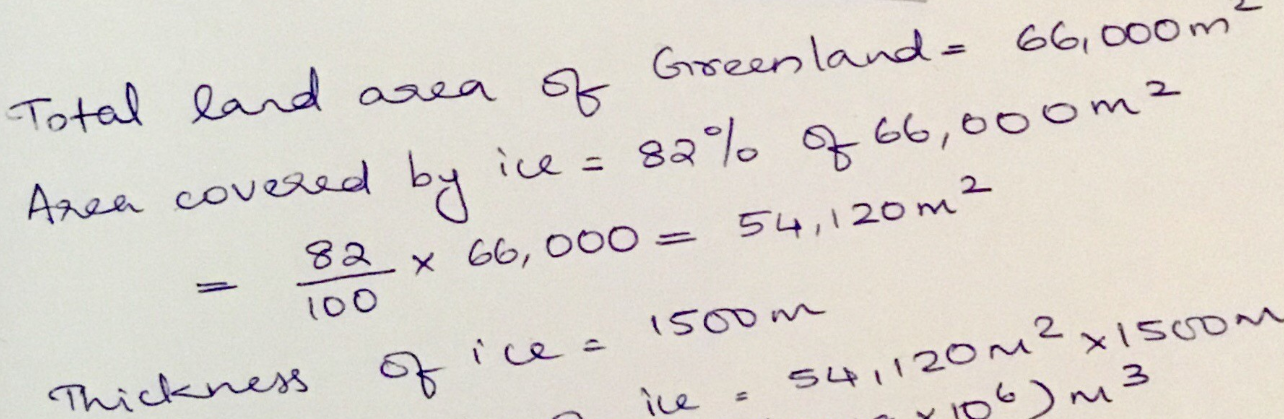 Total land area of Greenland = 66,000m²
Area covered by ice = 82% of 66,000m²
= 82/100 × 66,000 = 54,120m²
Thickness of ice = 1500m
ice = 54,120m² × 1500m
× 10⁶) m³